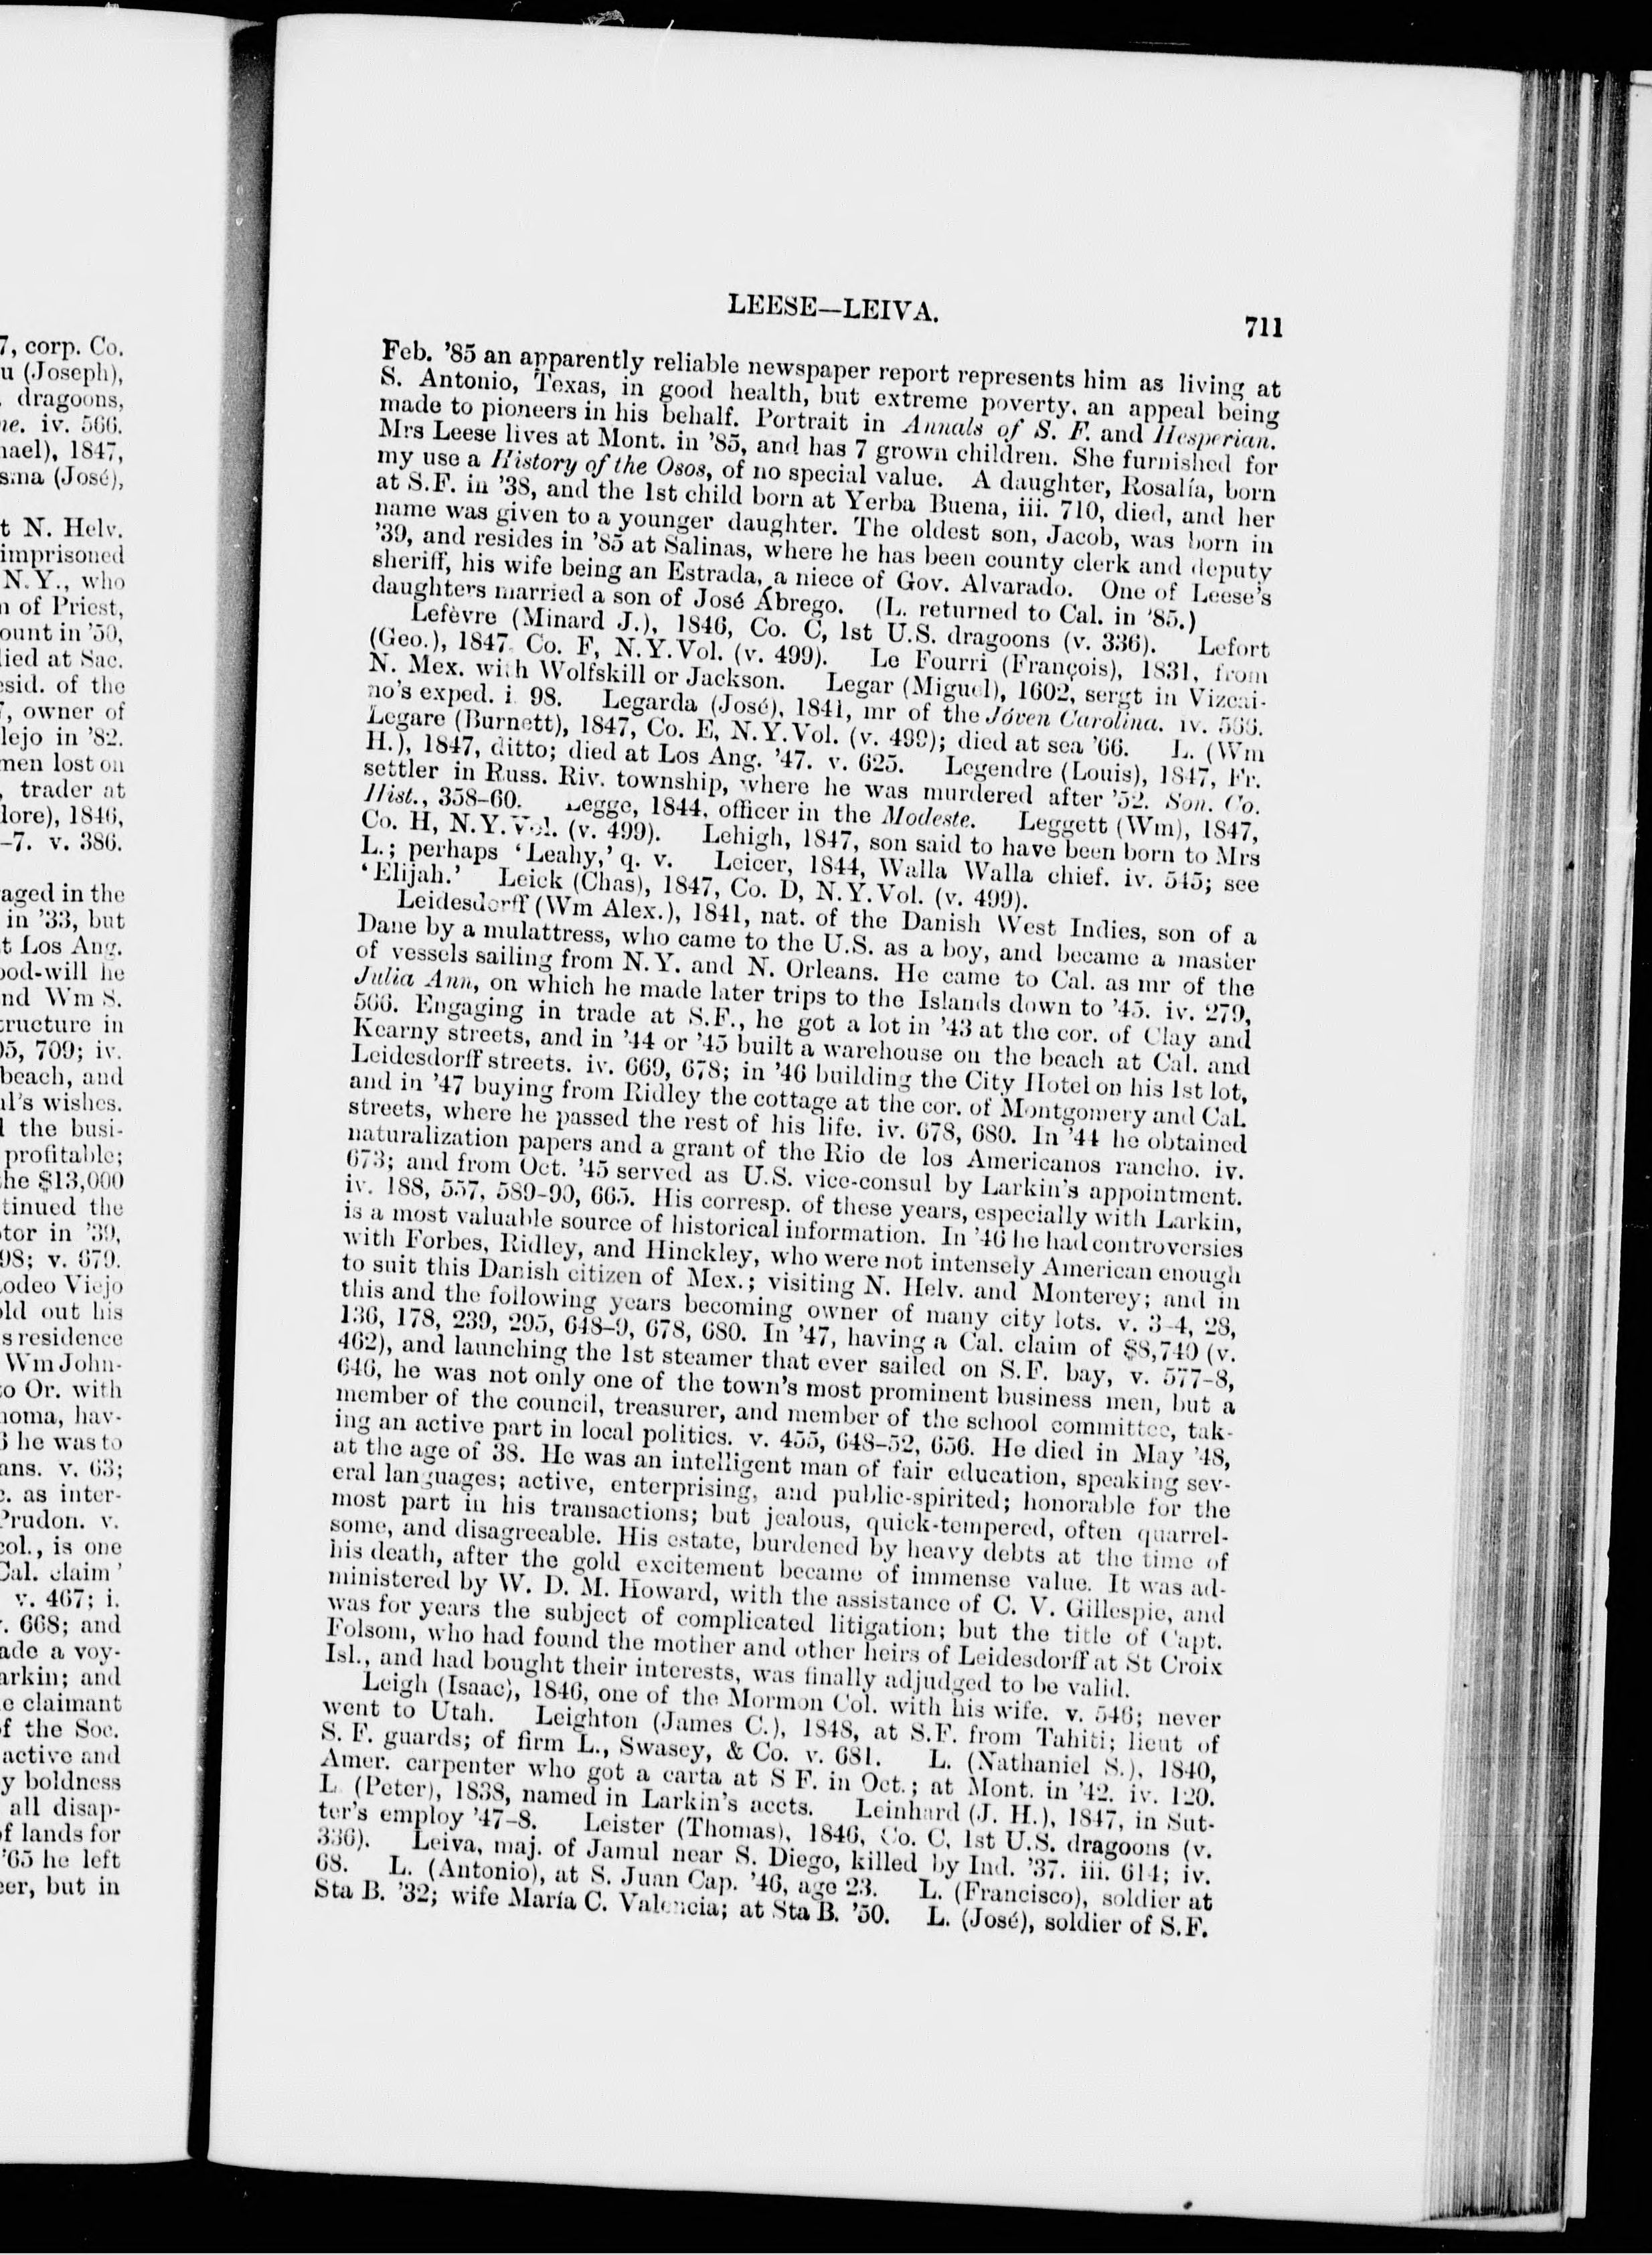 7, corp. Co.
u (Joseph),
dragoons,
ne. iv. 566.
hael), 1847,
sma (José),
t N. Helv.
imprisoned
N.Y., who
n of Priest,
ount in '50,
lied at Sac.
esid. of the
, owner of
lejo in '82.
men lost on
, trader at
lore), 1846,
–7. v. 386.
aged in the
in '33, but
t Los Ang.
ood-will he
nd Wm S.
tructure in
05, 709; iv.
beach, and
al's wishes.
l the busi-
profitable;
he $13,000
tinued the
tor in '39,
98; v. 679.
odeo Viejo
old out his
s residence
Wm John-
to Or. with
noma, hav-
6 he was to
ans. v. 63;
c. as inter-
Prudon. v.
col., is one
Cal. claim'
v. 467; i.
. 668; and
ade a voy-
arkin; and
e claimant
f the Soc.
active and
y boldness
all disap-
f lands for
'65 he left
eer, but in
LEESE—LEIVA.
711
Feb. '85 an apparently reliable newspaper report represents him as living at
S. Antonio, Texas, in good health, but extreme poverty, an appeal being
made to pioneers in his behalf. Portrait in Annals of S. F. and Hesperian.
Mrs Leese lives at Mont. in '85, and has 7 grown children. She furnished for
my use a History of the Osos, of no special value. A daughter, Rosalía, born
at S.F. in '38, and the 1st child born at Yerba Buena, iii. 710, died, and her
name was given to a younger daughter. The oldest son, Jacob, was born in
'39, and resides in '85 at Salinas, where he has been county clerk and deputy
sheriff, his wife being an Estrada, a niece of Gov. Alvarado. One of Leese's
daughters married a son of José Ábrego. (L. returned to Cal. in '85.)
Lefèvre (Minard J.), 1846, Co. C, 1st U.S. dragoons (v. 336). Lefort
(Geo.), 1847, Co. F, N.Y.Vol. (v. 499). Le Fourri (François), 1831, from
N. Mex. with Wolfskill or Jackson. Legar (Miguel), 1602, sergt in Vizcai-
no's exped. i. 98. Legarda (José), 1841, mr of the Jóven Carolina. iv. 566.
Legare (Burnett), 1847, Co. E, N.Y.Vol. (v. 499); died at sea '66. L. (Wm
H.), 1847, ditto; died at Los Ang. '47. v. 625. Legendre (Louis), 1847, Fr.
settler in Russ. Riv. township, where he was murdered after '52. Son. Co.
Hist., 358–60. Legge, 1844, officer in the Modeste. Leggett (Wm), 1847,
Co. H, N.Y.Vol. (v. 499). Lehigh, 1847, son said to have been born to Mrs
L.; perhaps 'Leahy,' q. v. Leicer, 1844, Walla Walla chief. iv. 545; see
'Elijah.' Leick (Chas), 1847, Co. D, N.Y.Vol. (v. 499).
Leidesdorff (Wm Alex.), 1841, nat. of the Danish West Indies, son of a
Dane by a mulattress, who came to the U.S. as a boy, and became a master
of vessels sailing from N.Y. and N. Orleans. He came to Cal. as mr of the
Julia Ann, on which he made later trips to the Islands down to '45. iv. 279,
566. Engaging in trade at S.F., he got a lot in '43 at the cor. of Clay and
Kearny streets, and in '44 or '45 built a warehouse on the beach at Cal. and
Leidesdorff streets. iv. 669, 678; in '46 building the City Hotel on his 1st lot,
and in '47 buying from Ridley the cottage at the cor. of Montgomery and Cal.
streets, where he passed the rest of his life. iv. 678, 680. In '44 he obtained
naturalization papers and a grant of the Rio de los Americanos rancho. iv.
673; and from Oct. '45 served as U.S. vice-consul by Larkin's appointment.
iv. 188, 557, 589–90, 665. His corresp. of these years, especially with Larkin,
is a most valuable source of historical information. In '46 he had controversies
with Forbes, Ridley, and Hinckley, who were not intensely American enough
to suit this Danish citizen of Mex.; visiting N. Helv. and Monterey; and in
this and the following years becoming owner of many city lots. v. 3–4, 28,
136, 178, 239, 295, 648–9, 678, 680. In '47, having a Cal. claim of $8,740 (v.
462), and launching the 1st steamer that ever sailed on S.F. bay, v. 577–8,
646, he was not only one of the town's most prominent business men, but a
member of the council, treasurer, and member of the school committee, tak-
ing an active part in local politics. v. 455, 648–52, 656. He died in May '48,
at the age of 38. He was an intelligent man of fair education, speaking sev-
eral languages; active, enterprising, and public-spirited; honorable for the
most part in his transactions; but jealous, quick-tempered, often quarrel-
some, and disagreeable. His estate, burdened by heavy debts at the time of
his death, after the gold excitement became of immense value. It was ad-
ministered by W. D. M. Howard, with the assistance of C. V. Gillespie, and
was for years the subject of complicated litigation; but the title of Capt.
Folsom, who had found the mother and other heirs of Leidesdorff at St Croix
Isl., and had bought their interests, was finally adjudged to be valid.
Leigh (Isaac), 1846, one of the Mormon Col. with his wife. v. 546; never
went to Utah. Leighton (James C.), 1848, at S.F. from Tahiti; lieut of
S. F. guards; of firm L., Swasey, & Co. v. 681. L. (Nathaniel S.), 1840,
Amer. carpenter who got a carta at S F. in Oct.; at Mont. in '42. iv. 120.
L (Peter), 1838, named in Larkin's accts. Leinhard (J. H.), 1847, in Sut-
ter's employ '47–8. Leister (Thomas), 1846, Co. C, 1st U.S. dragoons (v.
336). Leiva, maj. of Jamul near S. Diego, killed by Ind. '37. iii. 614; iv.
68. L. (Antonio), at S. Juan Cap. '46, age 23. L. (Francisco), soldier at
Sta B. '32; wife María C. Valencia; at Sta B. '50. L. (José), soldier of S.F.